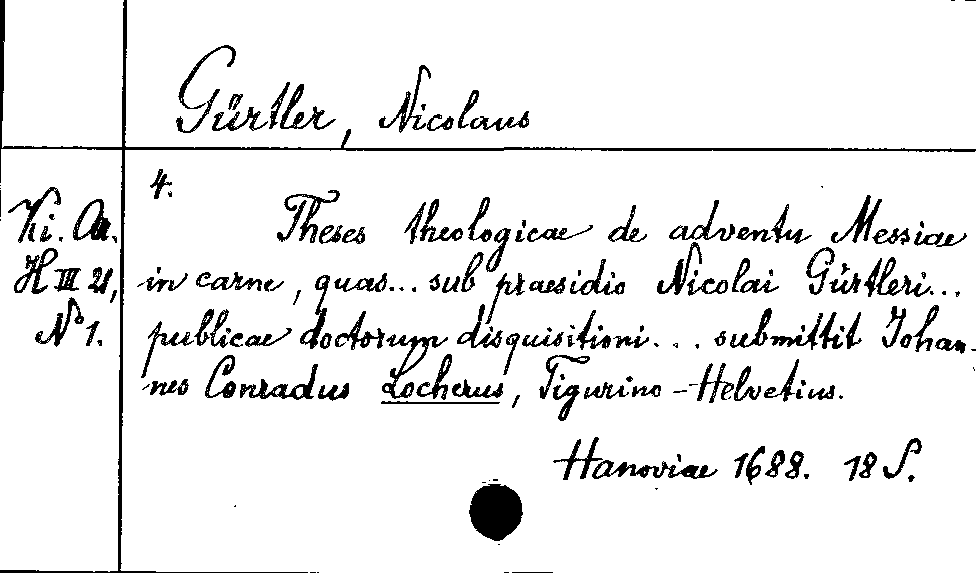 Gürtler, Nicolaus
4.
Ki. Ar.
H III 21,
No 1.
Theses theologicae de adventu Messiae
in carne, quas... sub praesidio Nicolai Gürtleri...
publicae doctorum disquisitioni... submittit Johan-
nes Conradus Locherus, Tigurino-Helvetius.
Hanoviae 1688. 18 S.